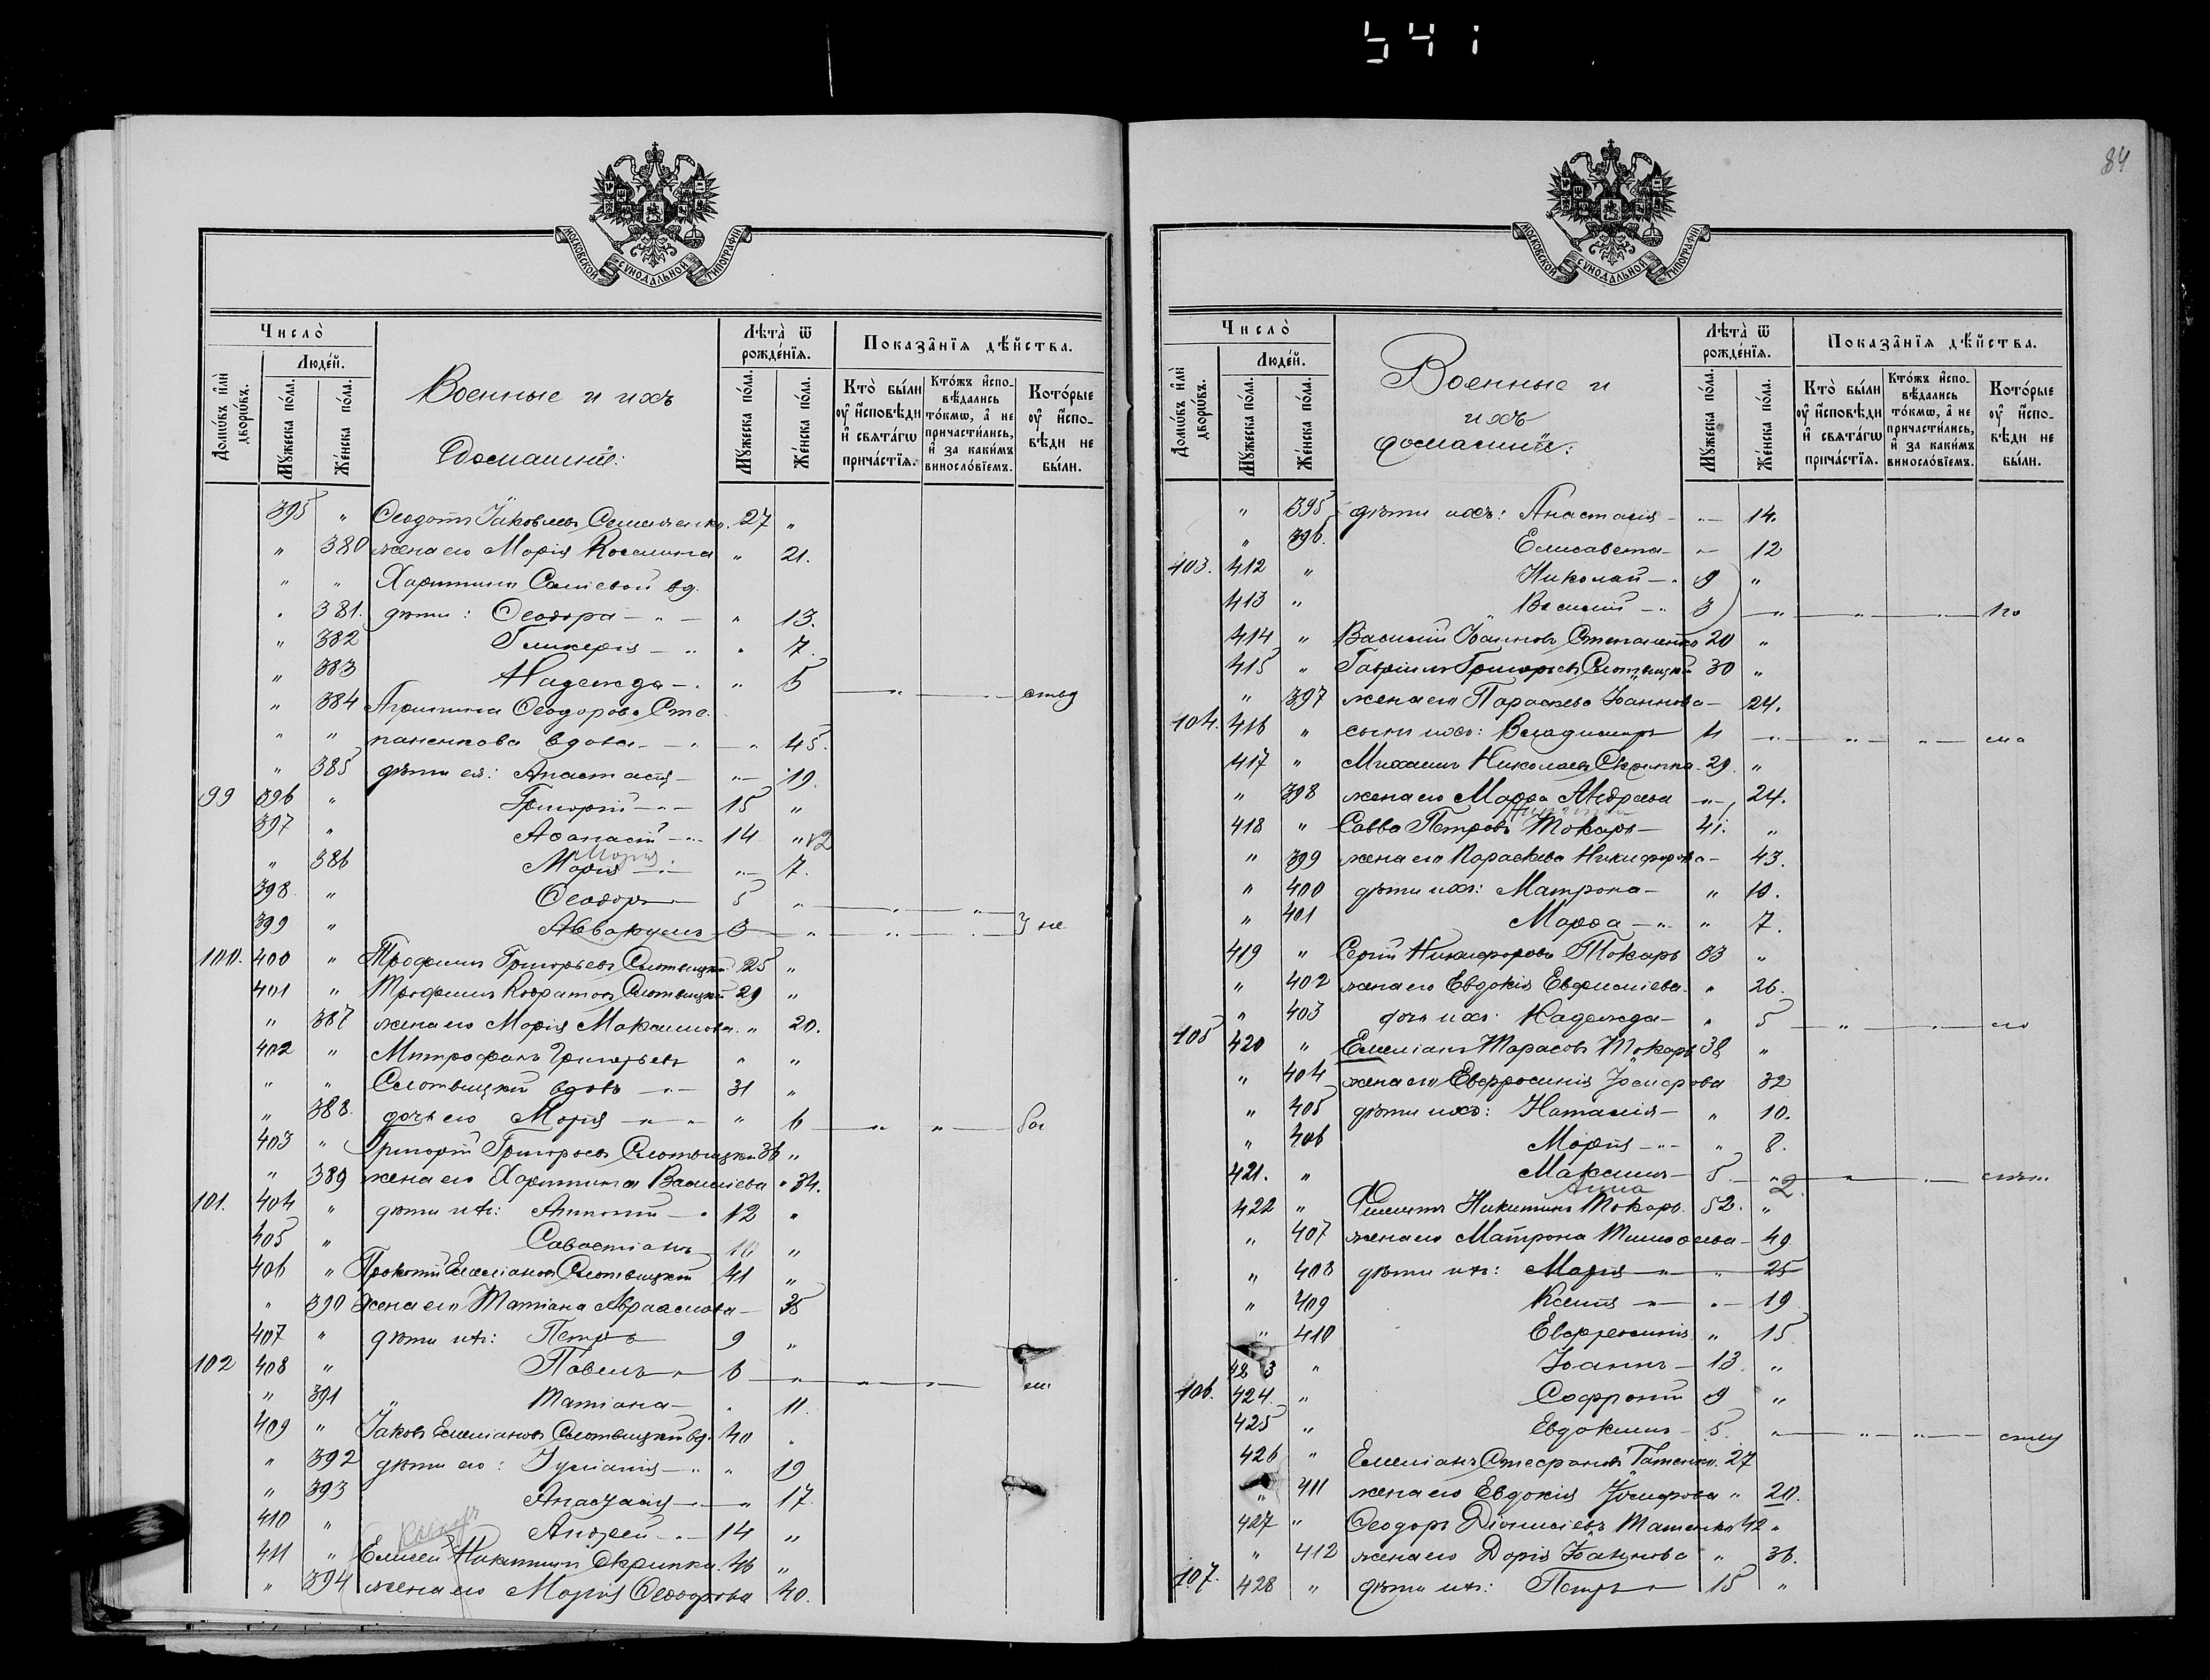 84
МОСКОВСКОЙ СѴНОДАЛЬНОЙ ТИПОГРАФІИ
Число̀
Людей.
Домѡвъ и҆лѝ дворѡвъ.
Мꙋжеска пола.
Женска пола.
Военные и ихъ
Домашніе:
Лѣта̀ ѿ рожденїѧ.
Мꙋжеска пола.
Женска пола.
Показанїѧ дѣйства.
Кто̀ были ᲂу҆ и҆сповѣди и҆ свѧтагѡ причастїѧ.
Ктожъ и҆сповѣдались токмѡ, а҆ не причастились, и҆ за какимъ винословїемъ.
Которые ᲂу҆ и҆споввѣди не были.
395 " Ѳеодотъ Іаковлевъ 27 "
" 380 жена его Марія 21.
" " Харитины вд.
" 381. дѣти: Ѳеодора — " — " 13.
" 382 Гликерія — " " 7.
" 383 Надежда — " " 5
" 384 Агриппина Ѳеодорова Сте-
" " паненкова вдова — " — " 45.
" 385 дѣти ея: Анастасія — " — 19.
99 396 " Григорій — " — 15 "
397 " Аѳанасій — " 14 " 12
Марія
" 386 Марія — " — 7.
398. " Ѳеодоръ 5 "
399 " Аввакумъ 3 "
100. 400 " Трофимъ Григорьевъ Слотвицкій 25 "
401 " Трофимъ Кодратовъ Слотвицкій 29 "
" 387 жена его Марія Максимова " 20.
402 " Митрофанъ Григорьевъ " "
" " Слотвицкій вдовъ — " — 31 "
" 388. дочь его Марія — " " 6
403 " Григорій Григорьевъ Слотвицкій 36 "
" 389 жена его Харитина Василіева " 34.
101. 404 " дѣти ихъ: Антоній — " 12 "
405 " Савастіанъ 10 "
406 " Прокопій Емеліановъ Слотвицкій 41 "
" 390 жена его Татіана Авраамова — 35
407 " дѣти ихъ: Петръ 9 "
102 408 " Павелъ " 6 "
" 391 " Татіана — " 11.
409 " Іаковъ Емеліановъ Слотвицкій вд. 40 "
" 392 дѣти его: Іуліанія — " " 19
" 393 Анастасія — " — 17.
410 " Андрей — " — 14 "
411 " Елисей Никитинъ Скрипка. 46 "
" 394 жена его Марія Ѳеодорова 40.
МОСКОВСКОЙ СѴНОДАЛЬНОЙ ТИПОГРАФІИ
Число̀
Людей.
Домѡвъ и҆лѝ дворѡвъ.
Мꙋжеска пола.
Женска пола.
Военные и
ихъ
домашніе:
Лѣта̀ ѿ рожденїѧ.
Мꙋжеска пола.
Женска пола.
Показанїѧ дѣйства.
Кто̀ были ᲂу҆ и҆сповѣди и҆ свѧтагѡ причастїѧ.
Ктожъ и҆сповѣдались токмѡ, а҆ не причастились, и҆ за какимъ винословїемъ.
Которые ᲂу҆ и҆сповѣди не были.
" 395 дѣти ихъ: Анастасія — " — 14.
" 396. Елисавета — " — 12
103. 412 " Николай — " 9 "
413 " Василій — " 3
414 " Василій Іоанновъ Степаненко 20 "
415 " Гавріилъ Григорьевъ Слотвицкій 30 "
" 397 жена его Параскева Іоаннова — 24.
104. 416 " сынъ ихъ: Владимиръ 4
417 " Михаилъ Николаевъ Скрипка 29. "
" 398 жена его Марѳа Андреева " — 24.
418 " Савва Петровъ Токарь — 41. "
" 399 жена его Параскева Никифорова — 43.
" 400 дѣти ихъ: Матрона — " 10.
" 401 Марѳа — " " 7.
419 " Сергій Никифоровъ Токарь 33 "
" 402 жена его Евдокія Евфиміева " 26.
" 403 дочь ихъ: Надежда — " 5
105 420 " Емеліанъ Тарасовъ Токарь 38 "
" 404 жена его Евфросинія Іосифова 32
" 405 дѣти ихъ: Наталія — " 10.
" 406 Марія — " — " 8.
421. " Максимъ — 5. " 2
Анна
422 " Филиппъ Никитинъ Токарь. 52. "
" 407 жена его Матрона Тимоѳеева — 49
" 408 дѣти ихъ: Марія — " 25
" 409 Ксенія — " " — 19
" 410 Евфросинія " 15
423 " Іоаннъ — 13. "
106. 424. " Софроній 9 "
425 " Евдокимъ — 5. "
426 " Емеліанъ Стефановъ 27
" 411 жена его Евдокія Іосифова " 20.
427 " Ѳеодоръ Діонисіевъ 42 "
" 412 жена его Дарія Іоаннова " 36.
107. 428 " дѣти ихъ: Петръ 15 "